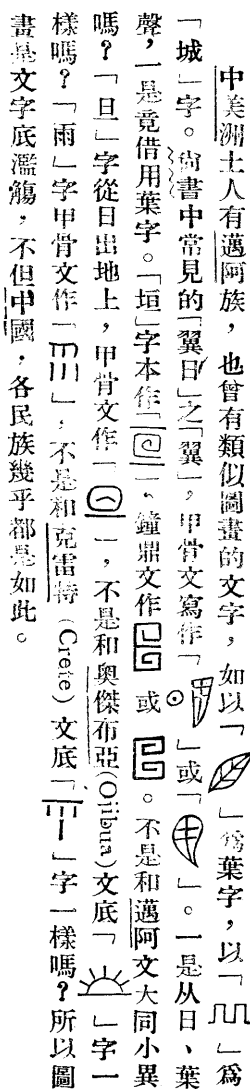 中美洲土人有邁阿族，也曾有類似圖畫的文字，如以「」爲葉字，以「」爲
「城」字。尙書中常見的「翼日」之「翼」，甲骨文寫作「」或「」。一是从日、葉
聲，一是竟借用葉字。「垣」字本作「」、鐘鼎文作或。不是和邁阿文大同小異
嗎？「旦」字從日出地上，甲骨文作「」，不是和奧傑布亞(Ojibua)文底「」字一
樣嗎？「雨」字甲骨文作「」，不是和克雷特(Crete)文底「」字一樣嗎？所以圖
畫是文字底濫觴，不但中國，各民族幾乎都是如此。